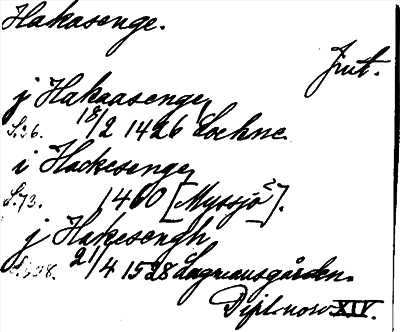 Hakasenge.
Jmt.
j Hakaasenge
S. 26. 18/2 1426 Lochne.
i Hackesenge
S. 73. 1460 [Myssjö?].
j Hakesengh
2/4 1528 Lagmansgården.
Dipl. norv. XIV.